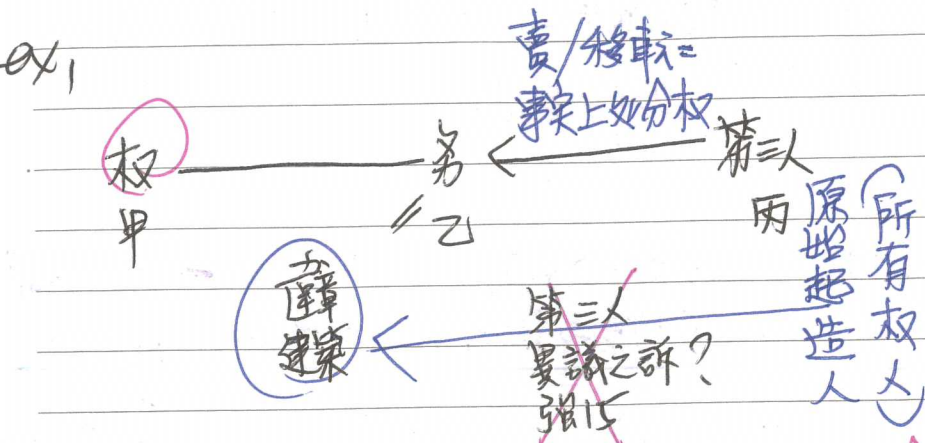 ex1
賣/移転=
事实上処分权
权
务
第三人
甲
乙
丙
原始起造人
(所有权人)
違章
建築
第三人
異議之訴?
强15